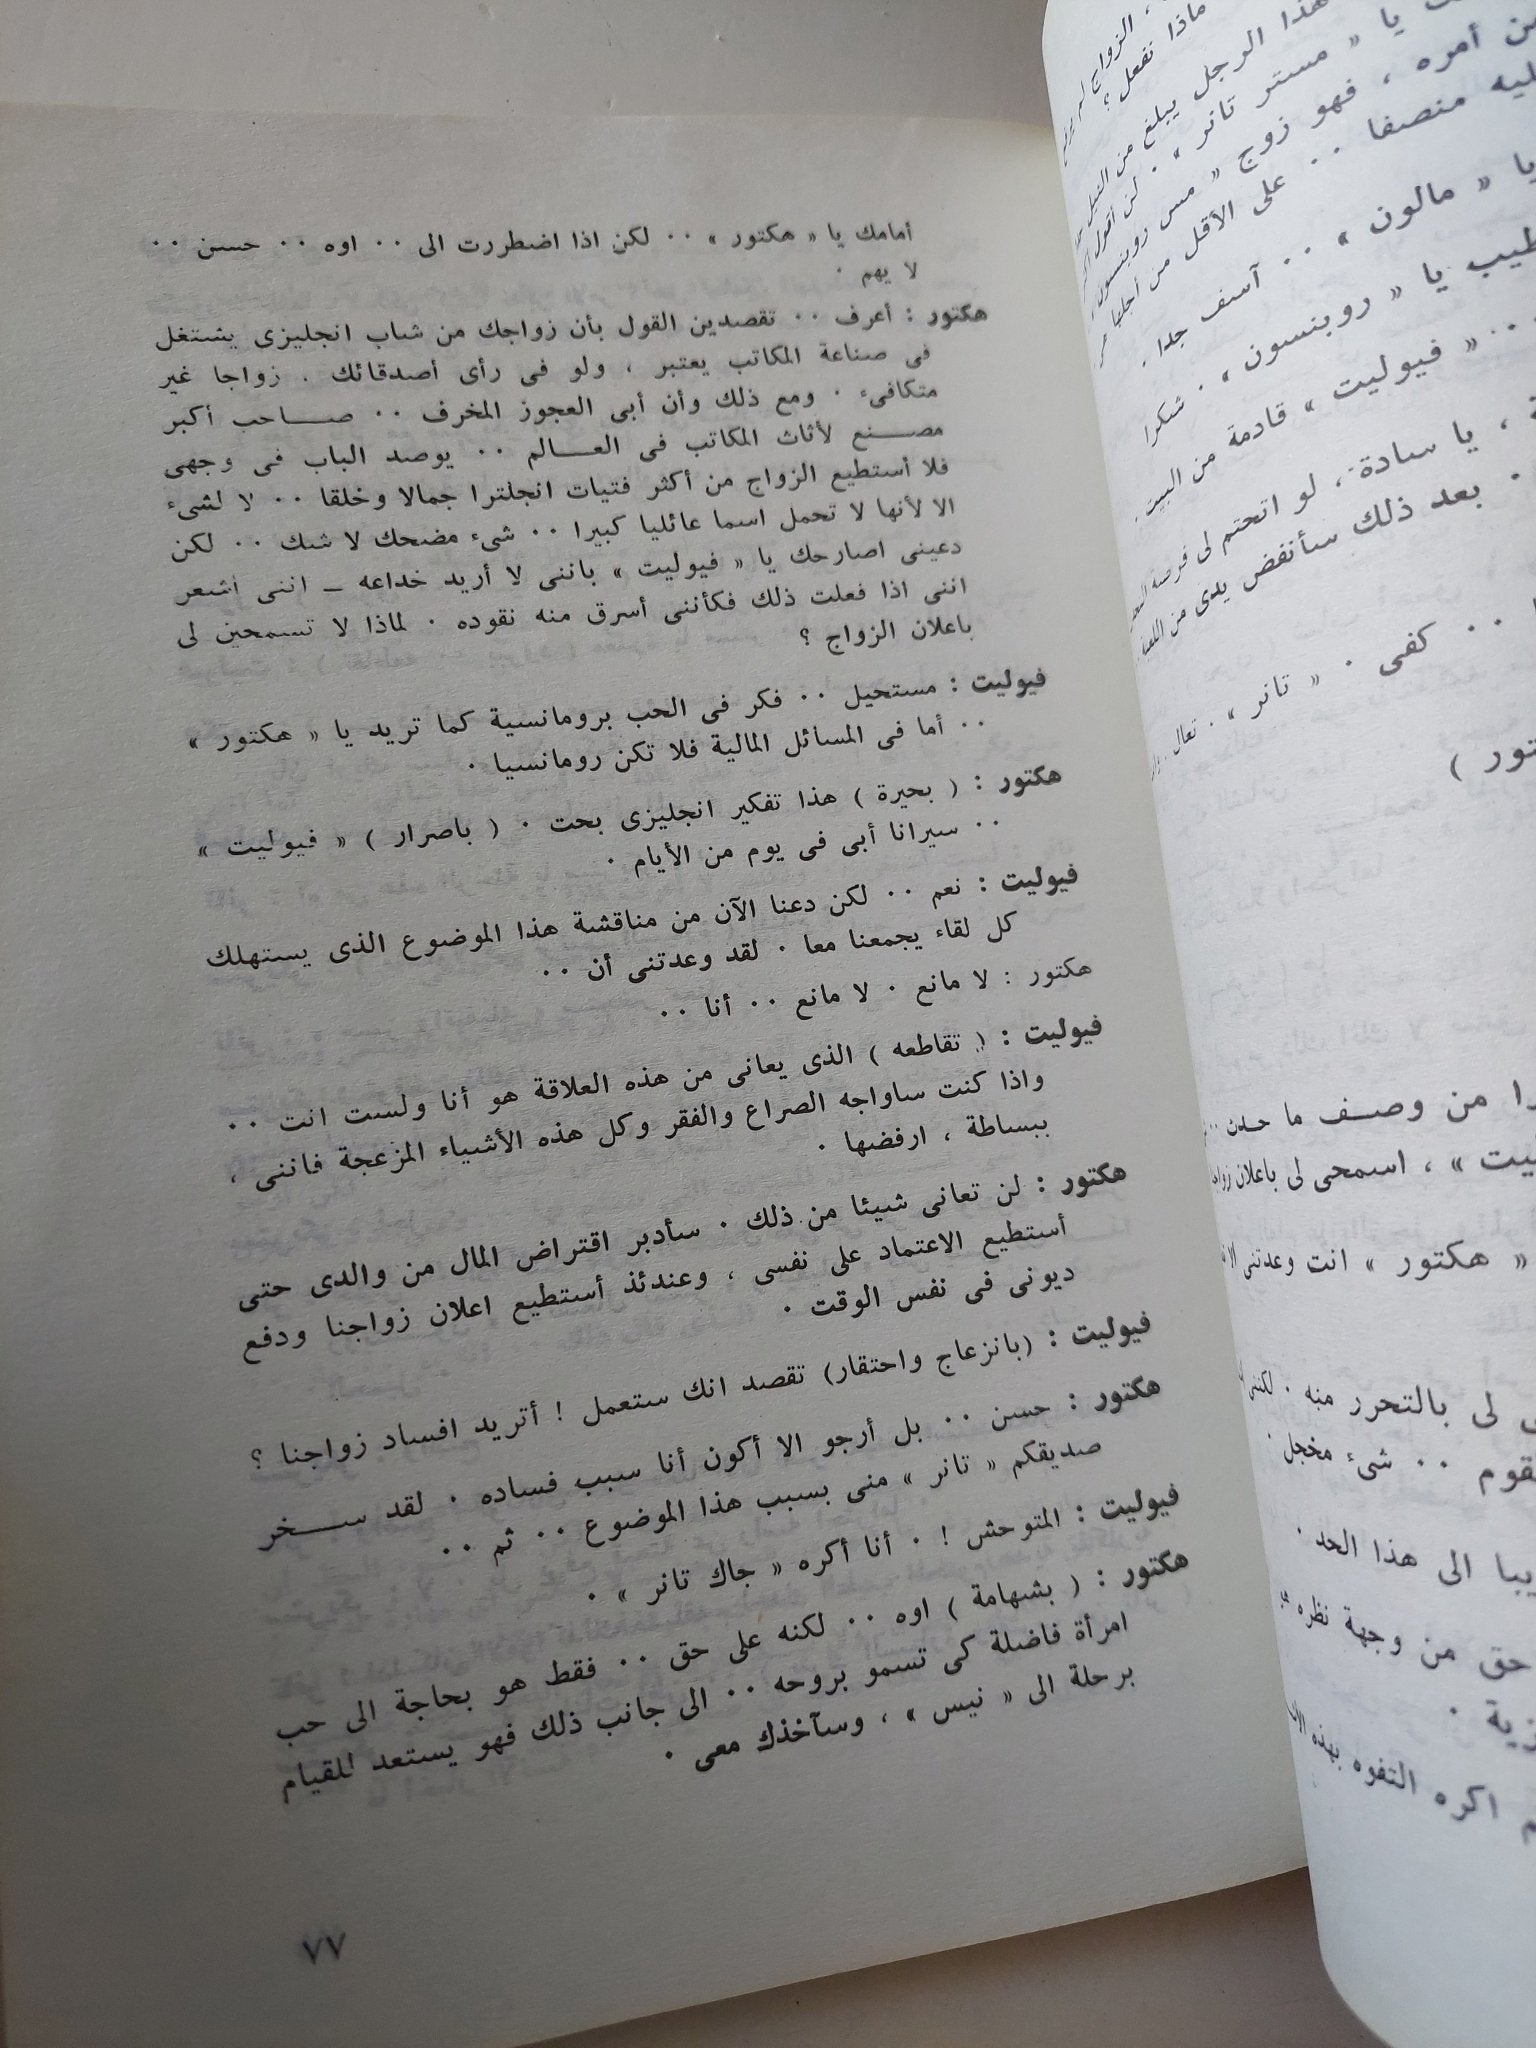 أمامك يا « هكتور » ٠٠ لكن اذا اضطررت الى ٠٠ اوه ٠٠ حسن ٠٠
لا يهم ٠
هكتور : أعرف ٠٠ تقصدين القول بأن زواجك من شاب انجليزى يشتغل
فى صناعة المكاتب يعتبر ، ولو فى رأى أصدقائك . زواجا غير
متكافىء ٠ ومع ذلك وأن أبى العجوز المخرف ٠٠ صاحب أكبر
مصنع لأثاث المكاتب فى العالم ٠٠ يوصد الباب فى وجهى
فلا أستطيع الزواج من أكثر فتيات انجلترا جمالا وخلقا ٠٠ لا لشىء
الا لأنها لا تحمل اسما عائليا كبيرا ٠٠ شىء مضحك لا شك ٠٠ لكن
دعينى اصارحك يا « فيوليت » باننى لا أريد خداعه ـ اننى أشعر
اننى اذا فعلت ذلك فكأننى أسرق منه نقوده ٠ لماذا لا تسمحين لى
باعلان الزواج ؟
فيوليت : مستحيل ٠٠ فكر فى الحب برومانسية كما تريد يا « هكتور »
٠٠ أما فى المسائل المالية فلا تكن رومانسيا ٠
هكتور : ( بحيرة ) هذا تفكير انجليزى بحت ٠ ( باصرار ) « فيوليت »
٠٠ سيرانا أبى فى يوم من الأيام ٠
فيوليت : نعم ٠٠ لكن دعنا الآن من مناقشة هذا الموضوع الذى يستهلك
كل لقاء يجمعنا معا ٠ لقد وعدتنى أن ٠٠
هكتور : لا مانع ٠ لا مانع ٠٠ أنا ٠٠
فيوليت : ( تقاطعه ) الذى يعانى من هذه العلاقة هو أنا ولست انت ٠٠
واذا كنت ساواجه الصراع والفقر وكل هذه الأشياء المزعجة فاننى ،
ببساطة ، ارفضها ٠
هكتور : لن تعانى شيئا من ذلك ٠ سأدبر اقتراض المال من والدى حتى
أستطيع الاعتماد على نفسى ، وعندئذ أستطيع اعلان زواجنا ودفع
ديونى فى نفس الوقت ٠
فيوليت : (بانزعاج واحتقار) تقصد انك ستعمل ! أتريد افساد زواجنا ؟
هكتور : حسن ٠٠ بل أرجو الا أكون أنا سبب فساده ٠ لقد سخر
صديقكم « تانر » منى بسبب هذا الموضوع ٠٠ ثم ٠٠
فيوليت : المتوحش ! ٠ أنا أكره « جاك تانر » ٠
هكتور : ( بشهامة ) اوه ٠٠ لكنه على حق ٠٠ فقط هو بحاجة الى حب
امرأة فاضلة كى تسمو بروحه ٠٠ الى جانب ذلك فهو يستعد للقيام
برحلة الى « نيس » ، وسآخذك معى ٠
٧٧
، الزواج لم
ماذا نفعل ؟
هذا الرجل يبلغ من النبل
يا « مستر تانر » ٠ لن أقول
من أمره ، فهو زوج « مس روبنسون
منصفا ٠٠ على الأقل من أجلها
يا « مالون » ٠٠ آسف جدا ٠
يا « روبنسون » ٠ شكرا
٠٠ « فيوليت » قادمة من البيت ٠
، يا سادة ، لو اتحتم لى فرصة
٠ بعد ذلك سأنفض يدى من
٠٠ كفى ٠ « تانر » ٠ تعال ٠٠
من وصف ما حدث ٠٠
» ، اسمحى لى باعلان
« هكتور » انت وعدتنى
لى بالتحرر منه ٠ لكننى
٠٠ شىء مخجل ٠
الى هذا الحد ٠
حق من وجهة نظره
اكره التفوه بهذه